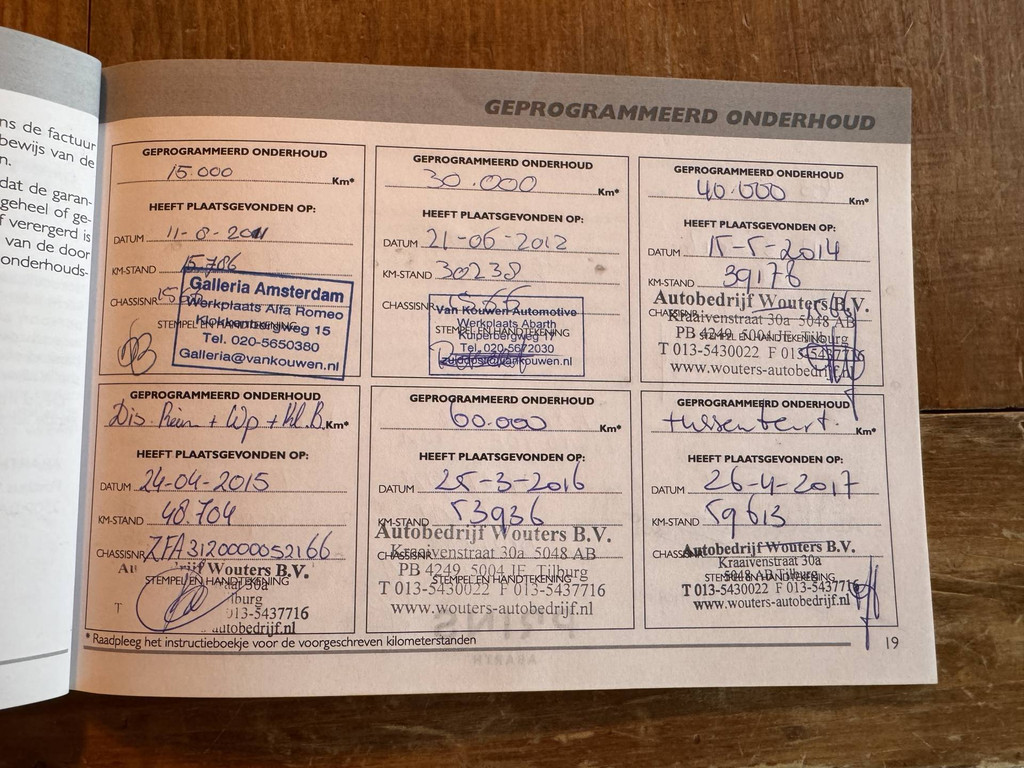 ns de factuur
bewijs van de
n.
dat de garan-
geheel of ge-
f verergerd is
van de door
onderhouds-
GEPROGRAMMEERD ONDERHOUD
GEPROGRAMMEERD ONDERHOUD
15.000 Km*
HEEFT PLAATSGEVONDEN OP:
DATUM 11-8-2011
KM-STAND 15.786
CHASSISNR.
STEMPEL EN HANDTEKENING
Galleria Amsterdam
Werkplaats Alfa Romeo
Klokkenbergweg 15
Tel. 020-5650380
Galleria@vankouwen.nl
GEPROGRAMMEERD ONDERHOUD
30.000 Km*
HEEFT PLAATSGEVONDEN OP:
DATUM 21-06-2012
KM-STAND 30238
CHASSISNR.
STEMPEL EN HANDTEKENING
Van Kouwen Automotive
Werkplaats Abarth
Kuiperbergweg 17
Tel. 020-5672030
zuidoost@vankouwen.nl
GEPROGRAMMEERD ONDERHOUD
40.000 Km*
HEEFT PLAATSGEVONDEN OP:
DATUM 15-5-2014
KM-STAND 39178
CHASSISNR.
STEMPEL EN HANDTEKENING
Autobedrijf Wouters B.V.
Kraaivenstraat 30a 5048 AB
PB 4249 5004 JE Tilburg
T 013-5430022 F 013-5437716
www.wouters-autobedrijf.nl
GEPROGRAMMEERD ONDERHOUD
Km*
HEEFT PLAATSGEVONDEN OP:
DATUM 24-04-2015
KM-STAND 48.704
CHASSISNR. ZFA3120000052166
STEMPEL EN HANDTEKENING
Wouters B.V.
30a
lburg
T 013-5437716
autobedrijf.nl
GEPROGRAMMEERD ONDERHOUD
60.000 Km*
HEEFT PLAATSGEVONDEN OP:
DATUM 25-3-2016
KM-STAND 53936
CHASSISNR.
STEMPEL EN HANDTEKENING
Autobedrijf Wouters B.V.
Kraaivenstraat 30a 5048 AB
PB 4249, 5004 JE Tilburg
T 013-5430022 F 013-5437716
www.wouters-autobedrijf.nl
GEPROGRAMMEERD ONDERHOUD
tussenbeurt. Km*
HEEFT PLAATSGEVONDEN OP:
DATUM 26-4-2017
KM-STAND 59613
CHASSISNR.
STEMPEL EN HANDTEKENING
Autobedrijf Wouters B.V.
Kraaivenstraat 30a
5048 AB Tilburg
T 013-5430022 F 013-5437716
www.wouters-autobedrijf.nl
* Raadpleeg het instructieboekje voor de voorgeschreven kilometerstanden
19